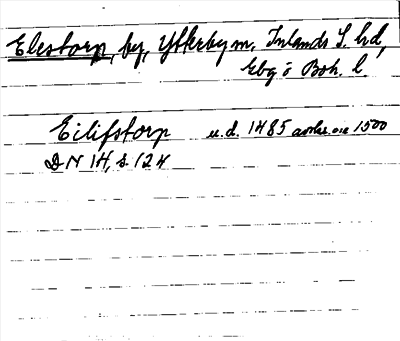 Elestorp, by, Ytterby sn, Inlands S. hd,
Gbg o Boh. l.
Eilifstorp u.d. 1485 avskr. ca 1500
DN 14, s. 124